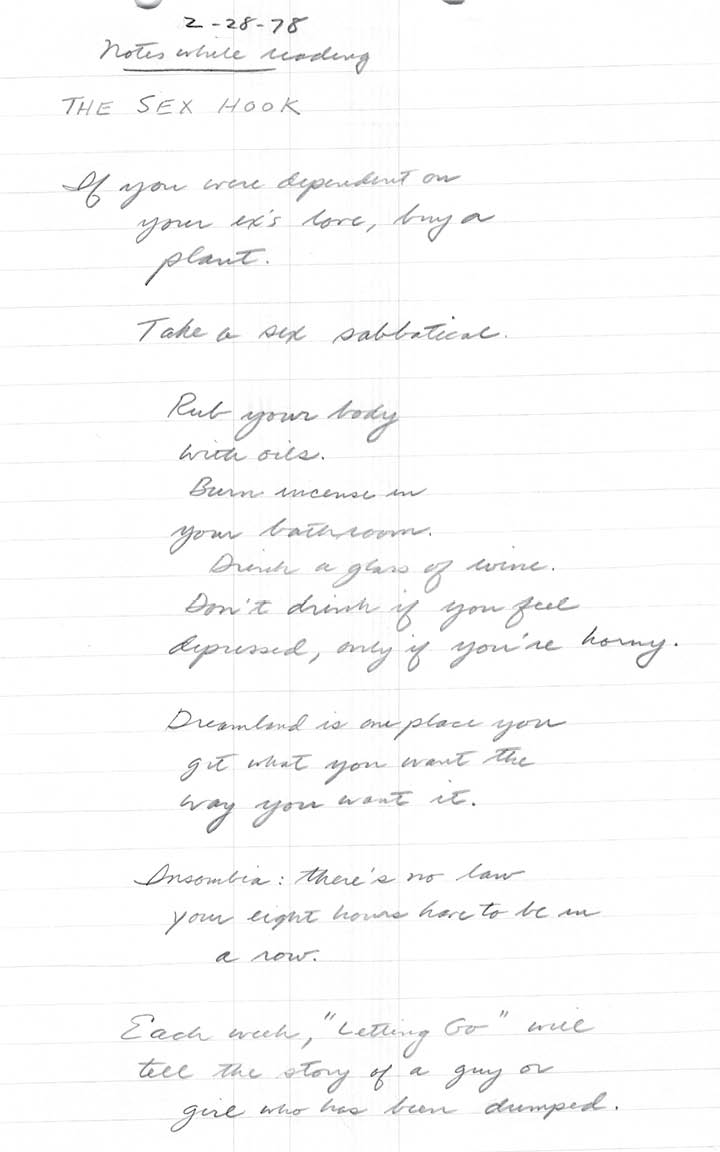 2-28-78
Notes while reading
THE SEX HOOK
If you were dependent on
your ex's love, buy a
plant.
Take a sex sabbatical.
Rub your body
with oils.
Burn incense in
your bathroom.
Drink a glass of wine.
Don't drink if you feel
depressed, only if you're horny.
Dreamland is one place you
get what you want the
way you want it.
Insombia: there's no law
your eight hours have to be in
a row.
Each week, "Letting Go" will
tell the story of a guy or
girl who has been dumped.